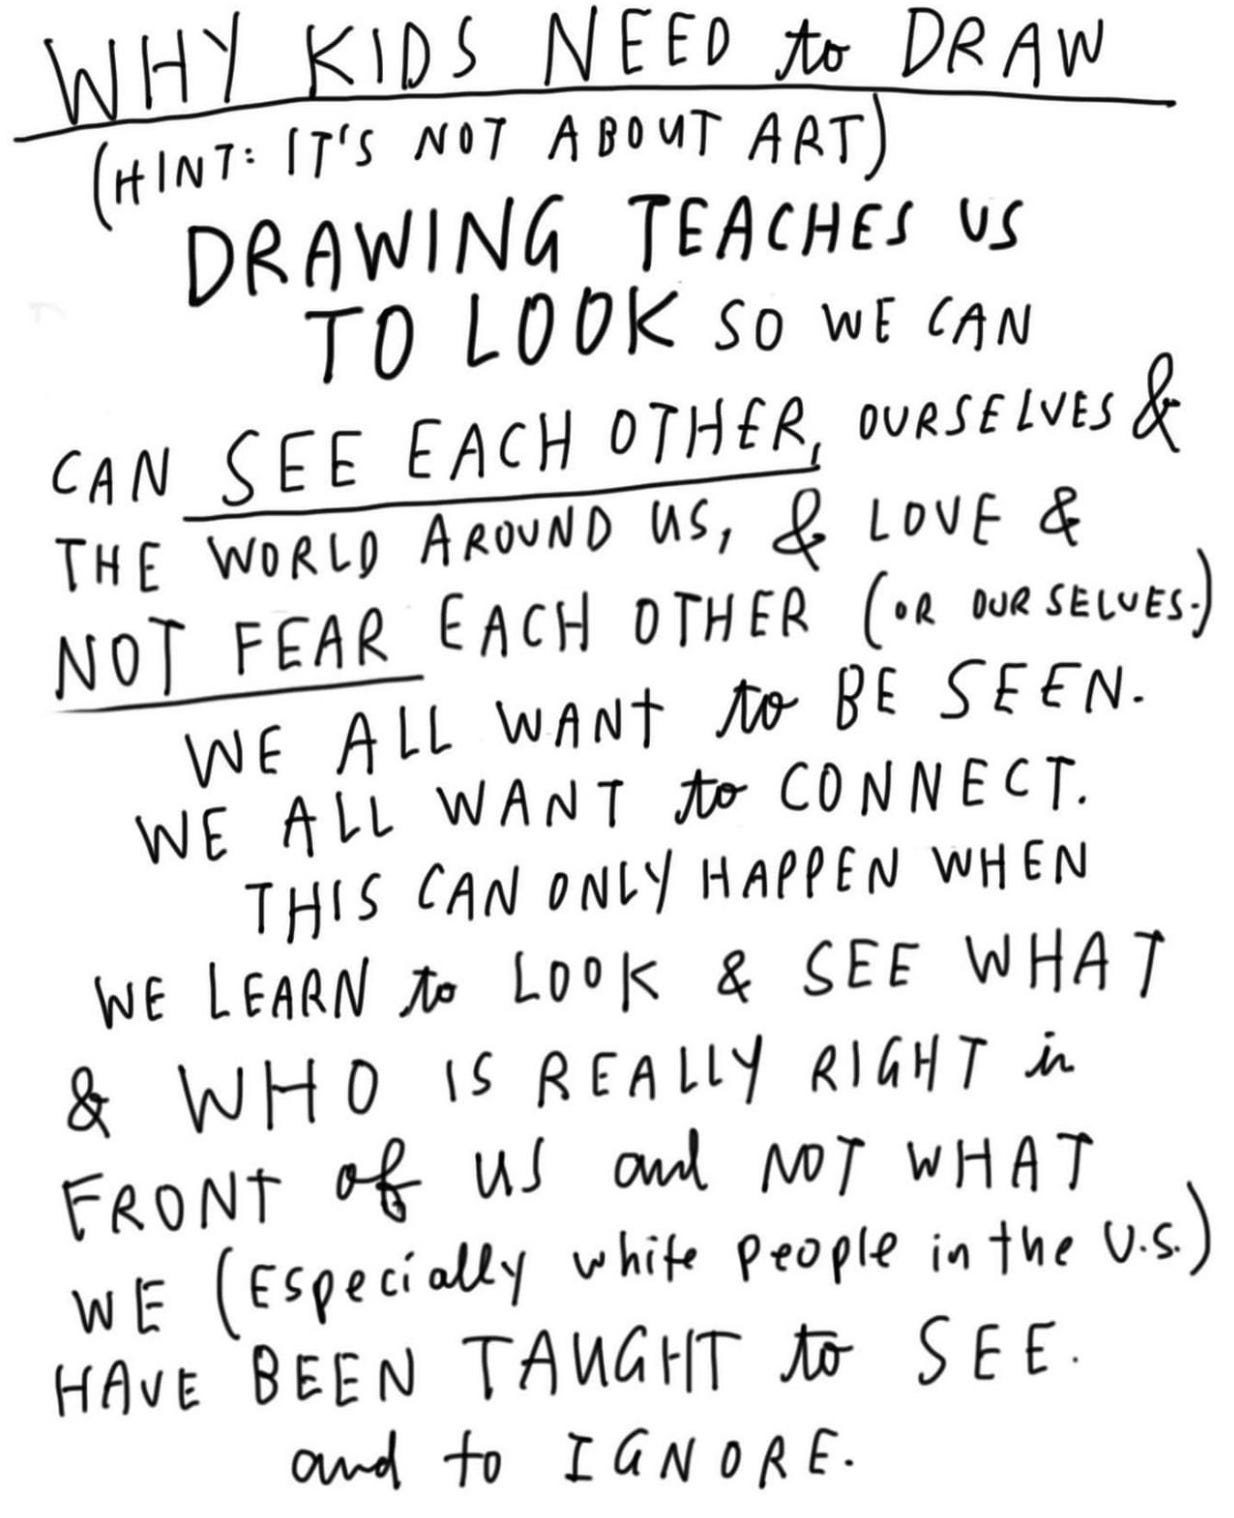 WHY KIDS NEED to DRAW
(HINT: IT'S NOT ABOUT ART)
DRAWING TEACHES US
TO LOOK SO WE CAN
CAN SEE EACH OTHER, OURSELVES &
THE WORLD AROUND US, & LOVE &
NOT FEAR EACH OTHER (OR OURSELVES.)
WE ALL WANT to BE SEEN.
WE ALL WANT to CONNECT.
THIS CAN ONLY HAPPEN WHEN
WE LEARN to LOOK & SEE WHAT
& WHO IS REALLY RIGHT in
FRONT of US and NOT WHAT
WE (Especially white people in the U.S.)
HAVE BEEN TAUGHT to SEE.
and to IGNORE.